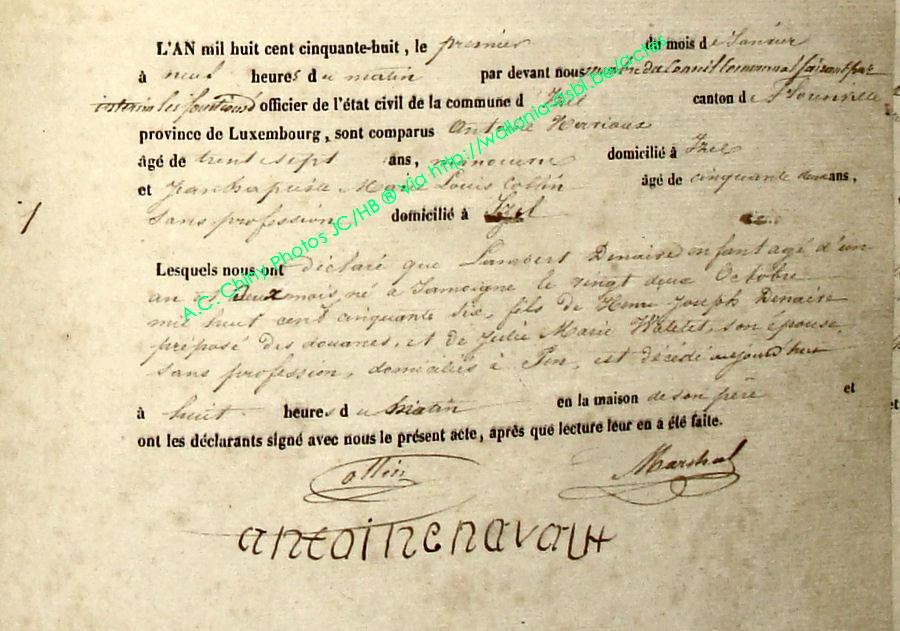 L'AN mil huit cent cinquante-huit, le premier du mois de Janvier
à neuf heures du matin par devant nous membre du Conseil Communal faisant par
interim les fonctions d officier de l'état civil de la commune d'Izel canton de Florenville
province de Luxembourg, sont comparus Antoine
âgé de trente sept ans, manoeuvre domicilié à Izel
et Jean Baptiste Marie Louis Collin âgé de cinquante deux ans,
sans profession domicilié à Izel
1
Lesquels nous ont déclaré que Lambert Denaire enfant agé d'un
an et deux mois, né à Jamoigne le vingt deux Octobre
mil huit cent cinquante six, fils de Henri Joseph Denaire
préposé des douanes, et de Julie Marie son épouse,
sans profession, domiciliés à Pin, est décédé aujourd'hui
à huit heures du matin en la maison de son père et
ont les déclarants signé avec nous le présent acte, après que lecture leur en a été faite.
Collin Marshal
antoine
A.C. Chiny Photos JC/HB ® via http://wallonia-asbl.be/actes
et